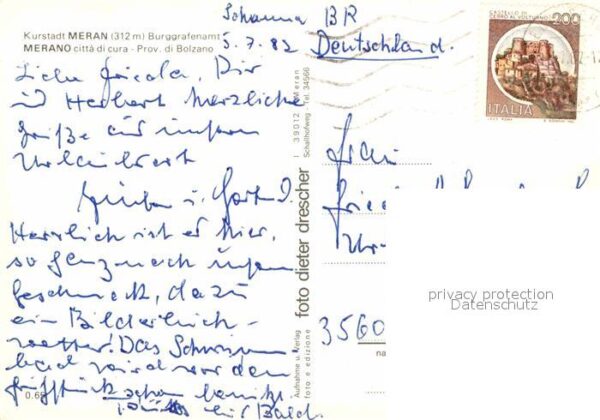 Kurstadt MERAN (312 m) Burggrafenamt
MERANO città di cura - Prov. di Bolzano
Johanna
5.7.82
Liebe Frieda, Dir
u Herbert herzliche
Grüße aus unserem
Urlaubsort
Herrlich ist es hier,
so ganz nach unserem
Geschmack, dazu
ein Bilderbuch-
wetter! Das Schwimm-
bad wird vor dem
Frühstück schon benützt.
Bis Bald
0.69
I 39012 Meran
Schallhofweg Tel. 34566
foto dieter drescher
Aufnahme u. Verlag
foto e edizione
BR
Deutschland.
CASTELLO DI
CERRO AL VOLTURNO
200
ITALIA
Frau
3560
privacy protection
Datenschutz